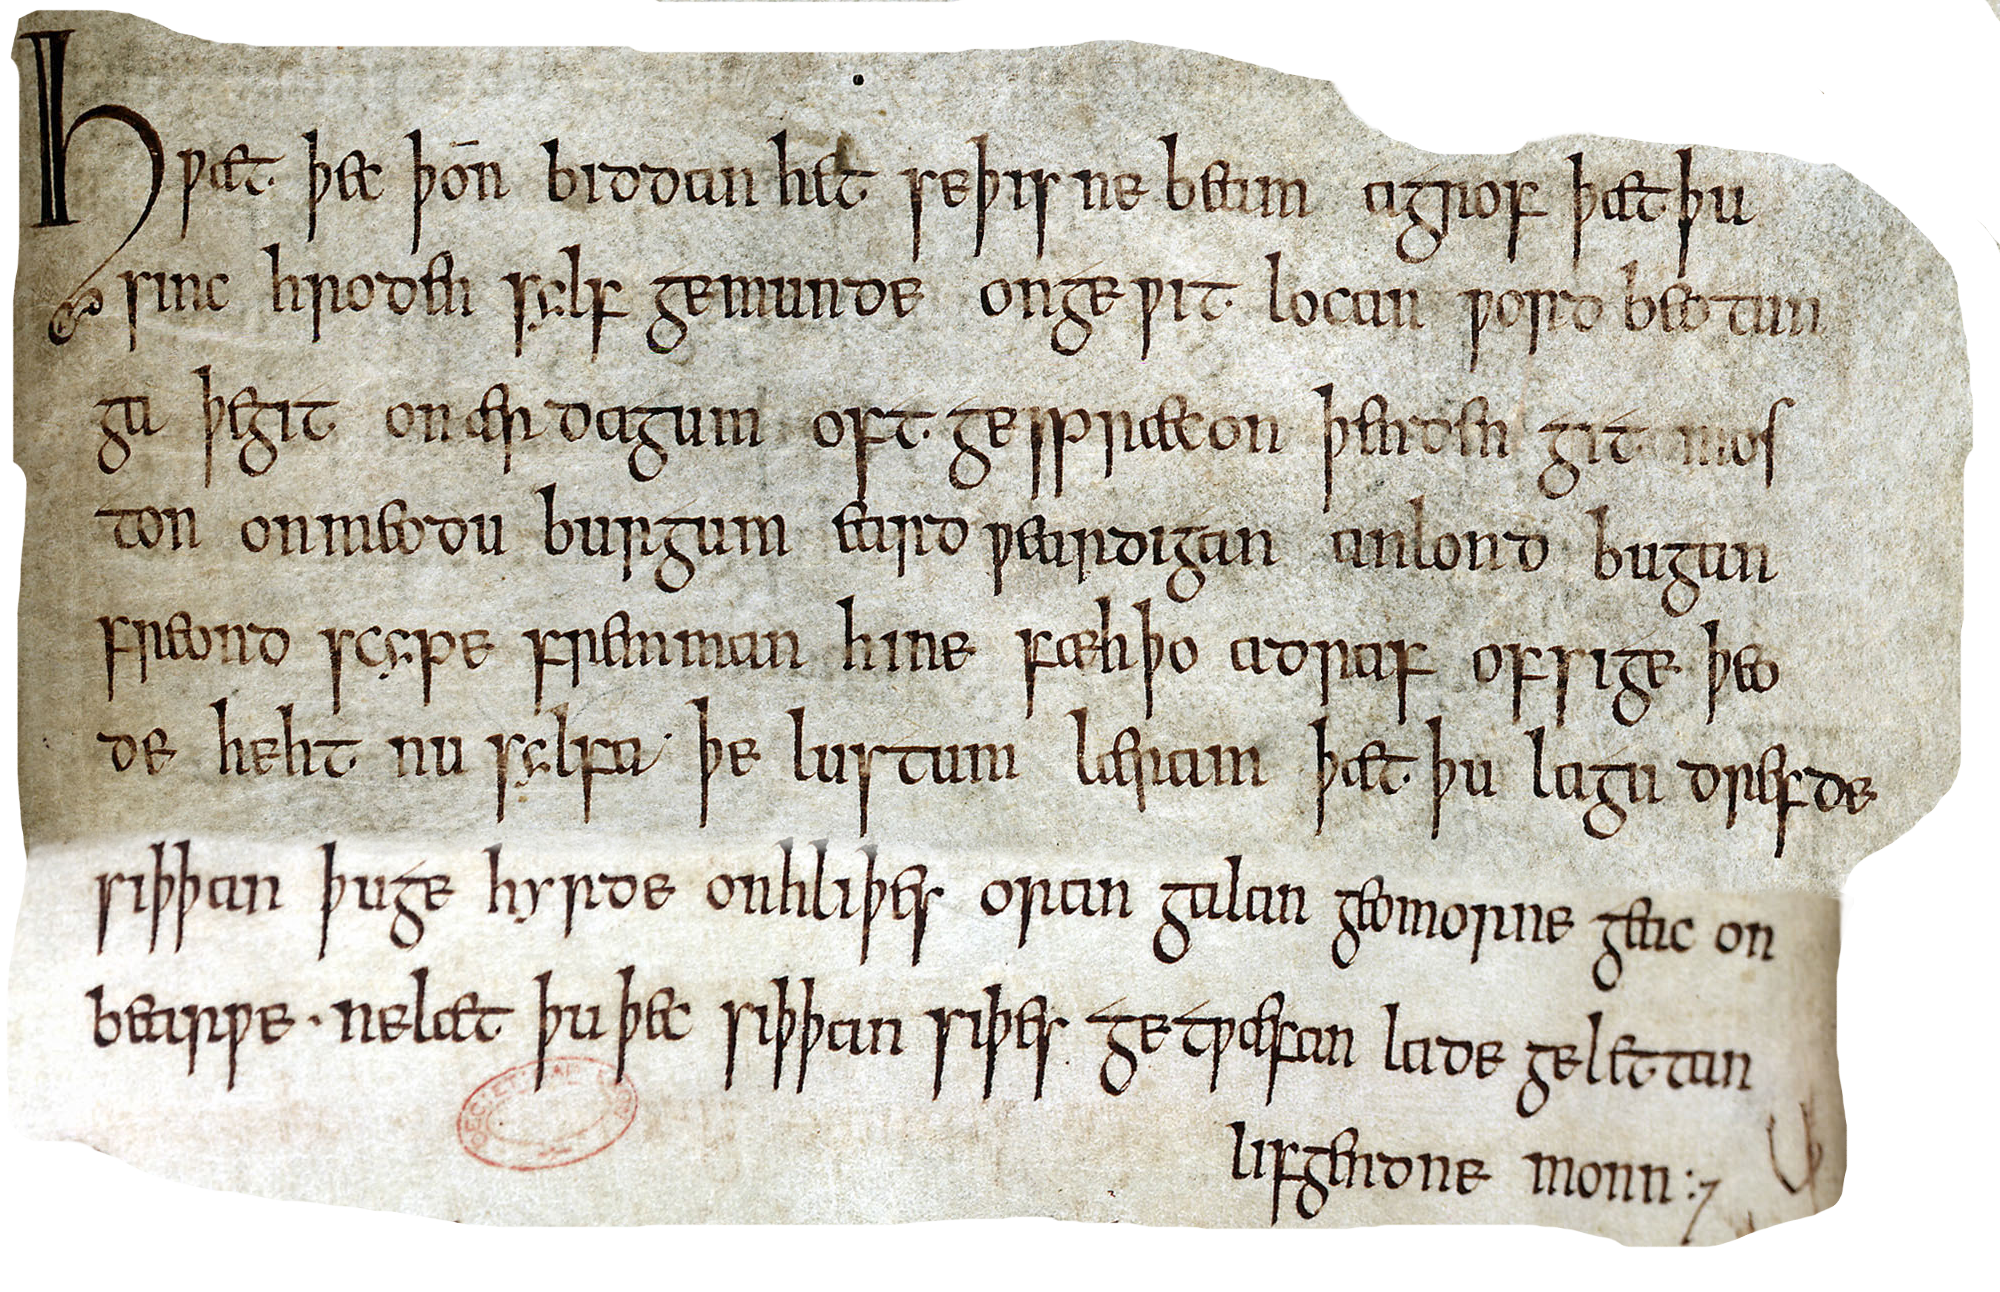 Hƿæt þec þon̄ biddan het seþisne beam agrof þæt þu
sinc hroden sylf gemunde ongeƿit locan ƿord beotun
ga þegit onær dagum oft gespræcon þenden git mos
ton onmeodu burgum eard ƿeardigan anlond bugan
freond scype fremman hine fæhþo adraf ofsige þeo
de heht nu sylfa þe lustum læram þæt þu lagu drefde
siþþan þuge hyrde onhliþes oran galan geomorne geac on
bearƿe · nelæt þu þec siþþan siþes getƿæfan lade gelettan
lifgendne monn :7